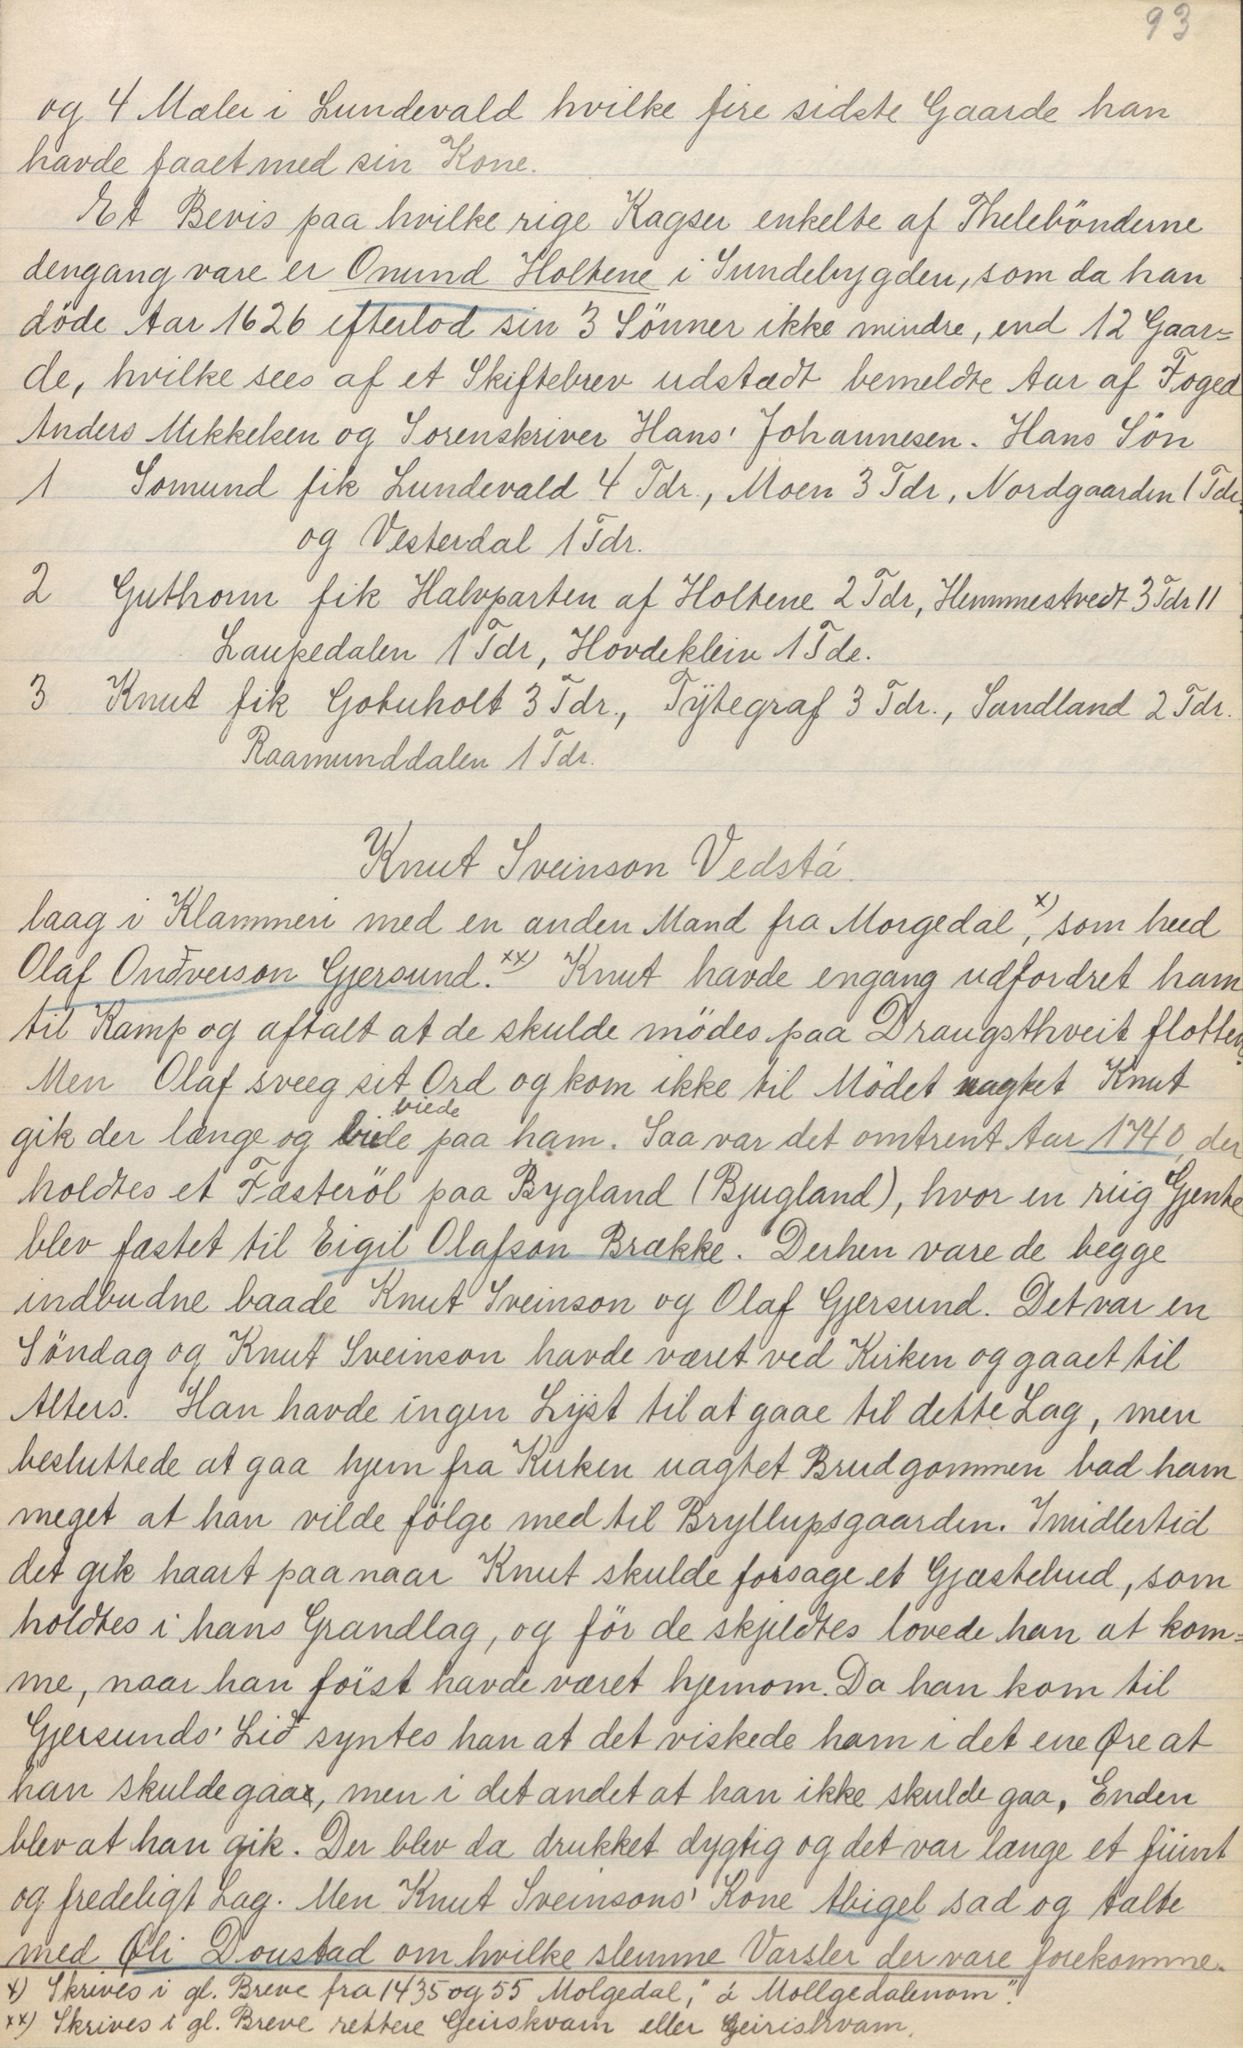 93
og 4 Mæler i Lundevald hvilke fire sidste Gaarde han
havde faaet med sin Kone.
Et Bevis paa hvilke rige Kagser enkelte af Thelebönderne
dengang vare er Onund Holtene i Sundebygden, som da han
döde Aar 1626 efterlod sin 3 Sönner ikke mindre, end 12 Gaar=
de, hvilke sees af et Skiftebrev udstædt bemeldte Aar af Foged
Anders Mikkelsen og Sorenskriver Hans' Johannesen. Hans Sön
1 Somund fik Lundevald 4 Tdr., Moen 3 Tdr, Nordgaarden 1 Tdr.
og Vesterdal 1 Tdr.
2 Guthorm fik Halvparten af Holtene 2 Tdr, Hemmestvedt 3 Tdr 11
Laupedalen 1 Tdr, Hovdeklein 1 Tde.
3 Knut fik Gotuholt 3 Tdr., Tÿtegraf 3 Tdr., Sundland 2 Tdr.
Raamunddalen 1 Tdr.
Knut Sveinson Vedstá.
laag i Klammeri med en anden Mand fra Morgedal, x) som heed
Olaf Ondverson Gjersund. xx) Knut havde engang udfordret ham
til Kamp og aftalt at de skulde mödes paa Draugsthveit flotten.
Men Olaf sveeg sit Ord og kom ikke til Mödet uagtet Knut
gik der længe og biede paa ham. Saa var det omtrent Aar 1740, der
holdtes et Fæsteröl paa Bygland (Bjugland), hvor en riig Gjente
blev fæstet til Eigil Olafson Brække. Derhen vare de begge
indbudne baade Knut Sveinson og Olaf Gjersund. Det var en
Söndag og Knut Sveinson havde været ved Kirken og gaaet til
Alters. Han havde ingen Lyst til at gaae til dette Lag, men
besluttede at gaa hjem fra Kirken uagtet Brudgommen bad ham
meget at han vilde fölge med til Bryllupsgaarden. Imidlertid
det gik haart paa naar Knut skulde forsage et Gjæstebud, som
holdtes i hans Grandlag, og för de skjeldtes lovede han at kom=
me, naar han först havde været hjemom. Da han kom til
Gjersunds' Lid syntes han at det viskede ham i det ene Øre at
han skulde gaa, men i det andet at han ikke skulde gaa. Enden
blev at han gik. Der blev da drukket dygtig og det var længe et fiint
og fredeligt Lag. Men Knut Sveinsons' Kone Abigel sad og talte
med Øli Doustad om hvilke slemme Varsler der vare forekomne.
x) Skrives i gl. Breve fra 1435 og 55 Molgedal, " á Mollgedalenom".
xx) Skrives i gl. Breve rettere Geirskvam eller Geiriskvam.